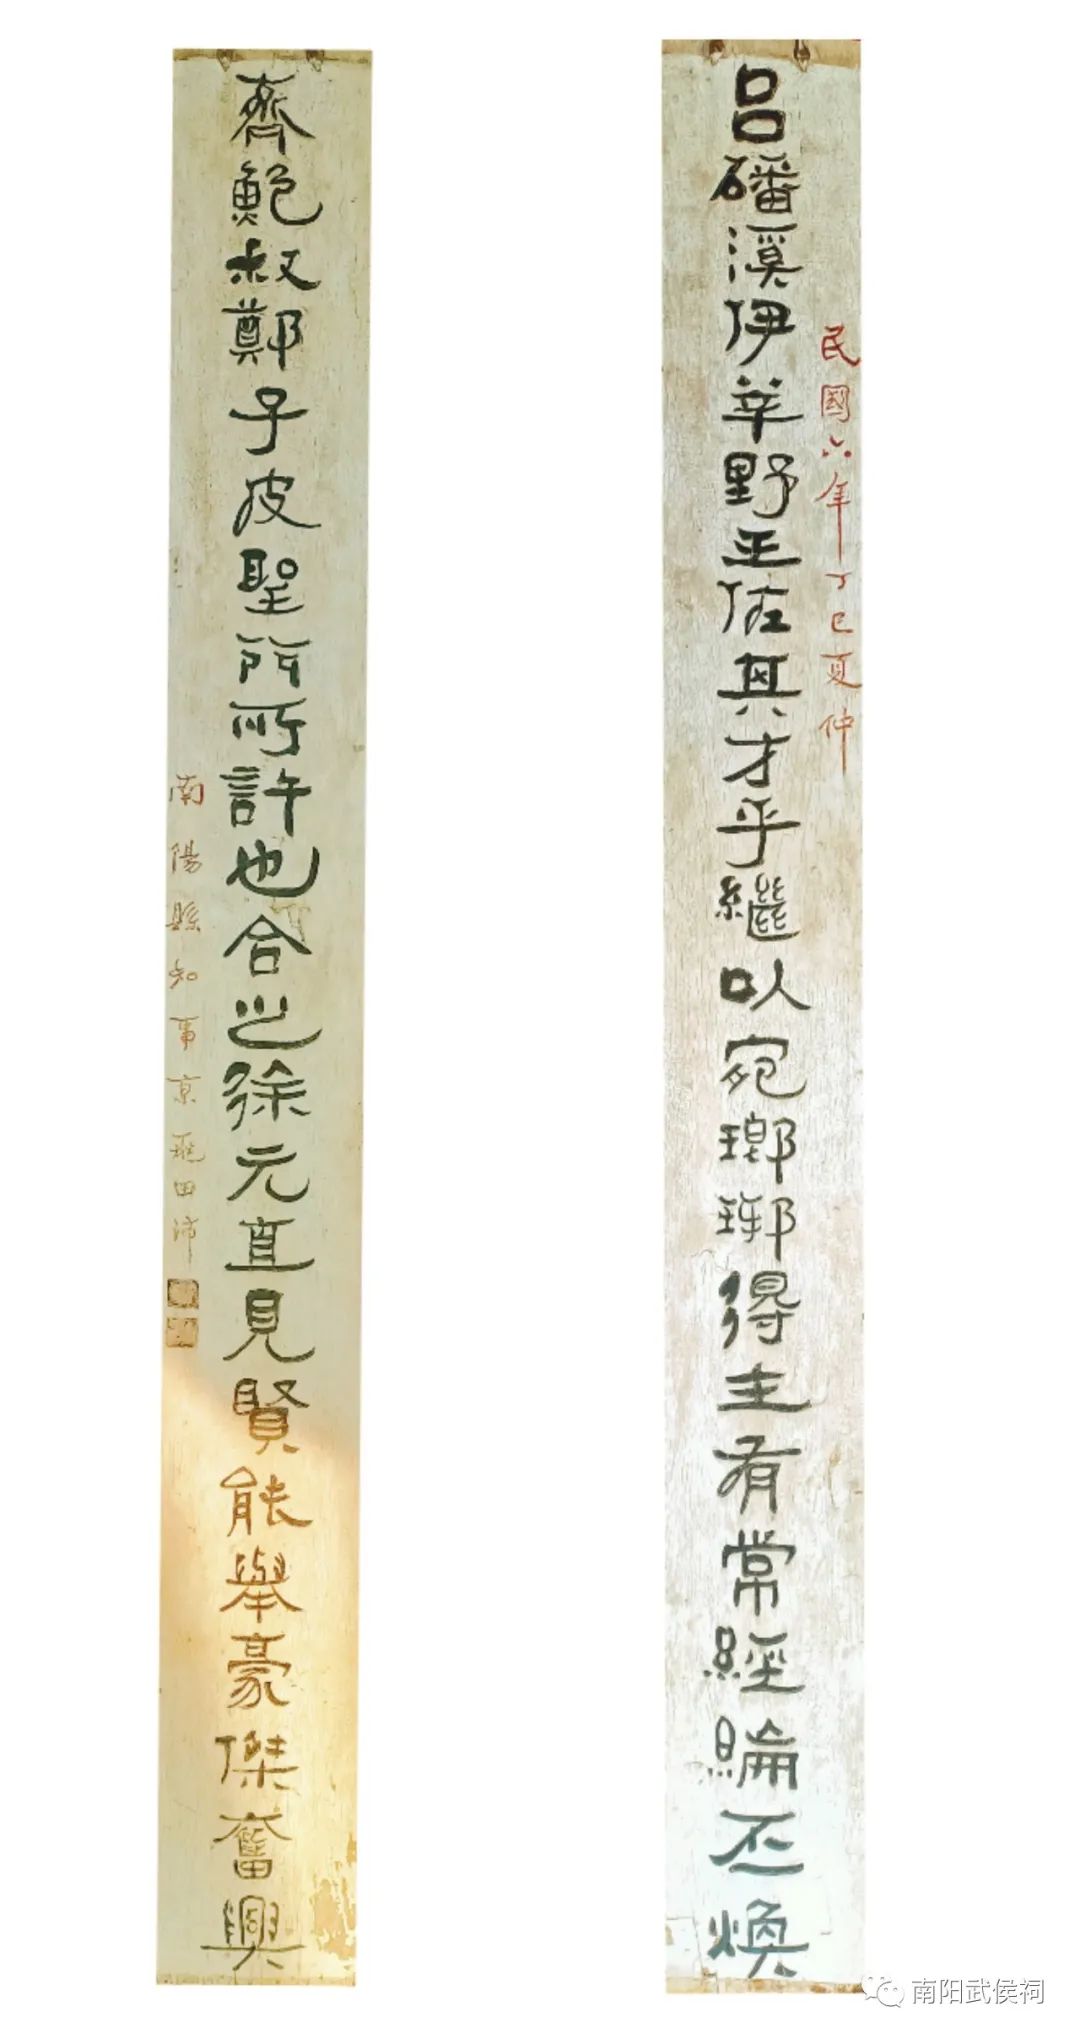 民國六年丁巳夏仲
呂磻溪伊莘野王佐其才乎繼以宛瑯琊得主有常經綸丕煥
齊鮑叔鄭子皮聖門所許也合之徐元直見賢能舉豪傑奮興
南陽縣知事京兆田沛
南阳武侯祠